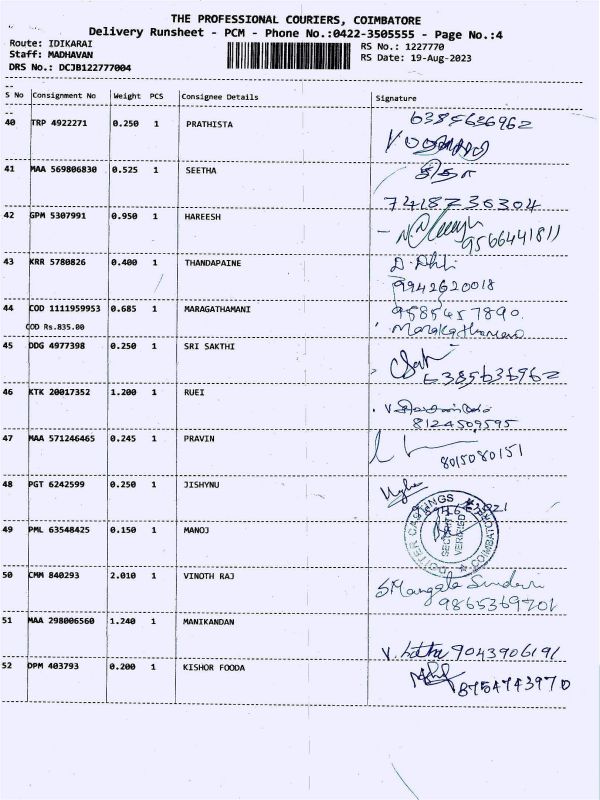 THE PROFESSIONAL COURIERS, COIMBATORE
Delivery Runsheet - PCM - Phone No.:0422-3505555 - Page No.:4
Route: IDIKARAI
RS No.: 1227770
Staff: MADHAVAN
RS Date: 19-Aug-2023
DRS No.: DCJB122777004
S No Consignment No Weight PCS Consignee Details Signature
40 TRP 4922271 0.250 1 PRATHISTA 6385636962
41 MAA 569806830 0.525 1 SEETHA சீதா
7418736304
42 GPM 5307991 0.950 1 HAREESH
9566441811
43 KRR 5780826 0.400 1 THANDAPAINE
9942620018
44 COD 1111959953 0.685 1 MARAGATHAMANI 9585457890.
COD Rs.835.00
45 DDG 4977398 0.250 1 SRI SAKTHI
6385636962
46 KTK 20017352 1.200 1 RUEI
8124509595
47 MAA 571246465 0.245 1 PRAVIN
8015080151
48 PGT 6242599 0.250 1 JISHYNU
49 PML 63548425 0.150 1 MANOJ
SECURITY
VERIFIED
50 CMM 840293 2.010 1 VINOTH RAJ S Mangala Sundari
9865369701
51 MAA 298006560 1.240 1 MANIKANDAN
V. Latha 9043906191
52 DPM 403793 0.200 1 KISHOR FOODA
8754743970